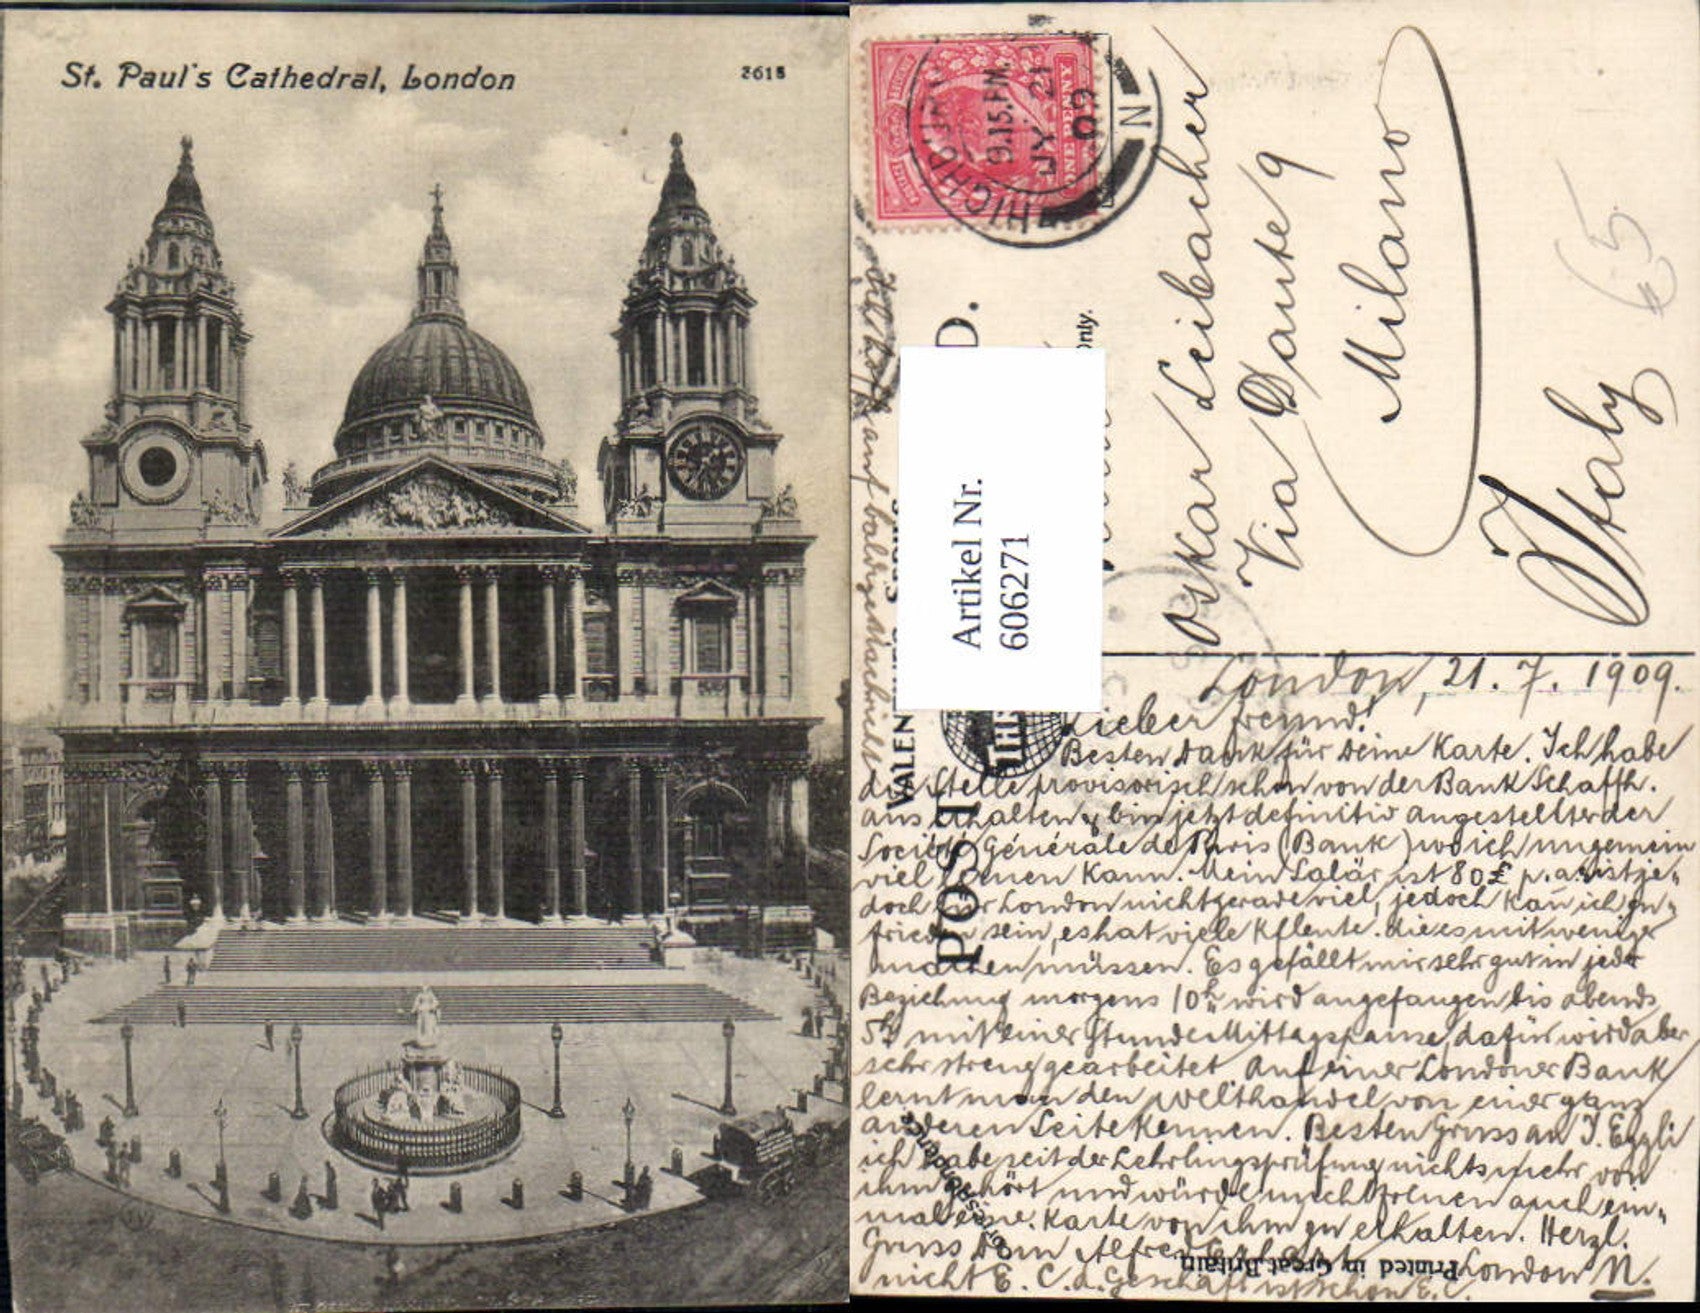 St. Paul's Cathedral, London
2618
HIGHB
9.15.PM.
JY 21
09
N
ONE PENNY
Oskar Leibacher
Via Dante 9
Milano
Italy
65
Only.
D.
Artikel Nr.
606271
VALEN
POST
auf baldige
London, 21. 7. 1909.
Lieber Freund!
Besten Dank für Deine Karte. Ich habe
die Stelle provisorisch schon von der Bank Schaffh.
aus erhalten & bin jetzt definitiv angestellt der
Société Générale de Paris (Bank) wo ich ungemein
viel lernen kann. Mein Salär ist 80£ p.a. ist je-
doch für London nicht gerade viel, jedoch kann ich zu-
frieden sein, es hat viele die es mit weniger
machen müssen. Es gefällt mir sehr gut in jeder
Beziehung morgens 10h wird angefangen bis abends
5h mit einer Stunde Mittagspause, dafür wird aber
sehr streng gearbeitet. Auf einer Londoner Bank
lernt man den Welthandel von einer ganz
anderen Seite kennen. Besten Gruss an J. Eggli
ich habe seit der Lehrlingsprüfung nichts mehr von
ihm gehört und würde mich freuen auch ein-
mal eine Karte von ihm zu erhalten. Herzl.
Gruss Dein Alfred London N.
nicht E. C. d. Geschäft ist schon E.C.
Correspondence
Printed in Great Britain